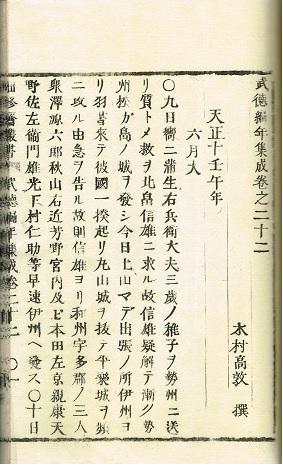 武德編年集成卷之二十二
木村高敦 撰
天正十壬午年
六月大
〇九日衞ニ蒲生右兵衞大夫三歲ノ稚子ヲ勢州ニ送
リ質トメ救ヲ北畠信雄ニ求ル故信雄疑解テ漸ク勢
州松ガ島ノ城ヲ發シ今日土山マデ出張ノ所伊州ヨ
リ羽書來テ彼國一揆起リ丸山城ヲ拔テ平樂城ヲ頻
ニ攻ル由急ヲ告ル故ニ信雄ヨリ和州宇多郡ノ三人
衆澤源六郎秋山右近芳野宮内及ビ本田左京親康天
野佐左衞門雄光下村仁助等早速伊州ヘ發ス〇十日